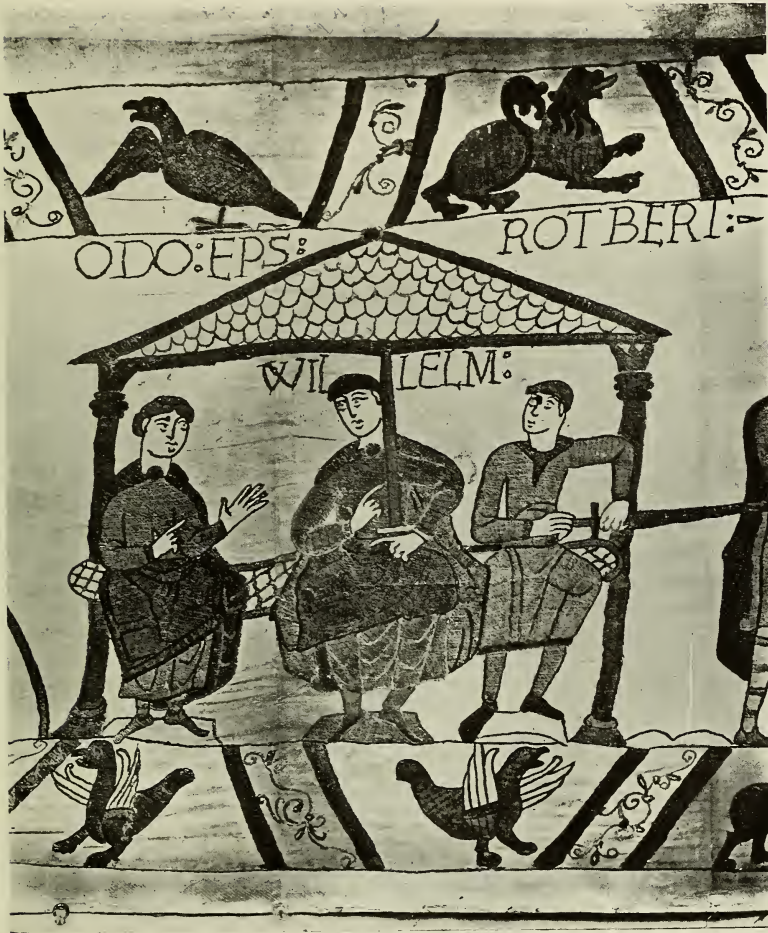 ODO:EPS:
ROTBERT:
WILLELM: